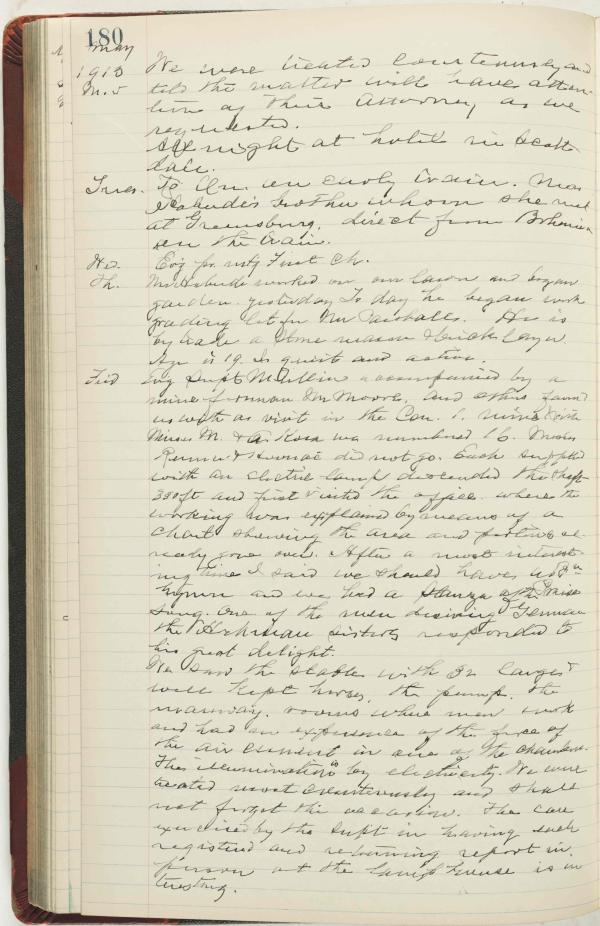 180
May
1913 We were treated courteously and
M. 5 told the matter will have atten
tion of their Attorney as we
requested.
night at hotel in Scott
dale.
Tues. To Un. on early train. Miss
brother whom she met
at Greensburg, direct from Bohemia
on the train.
We. Eve pr. mtg First Ch.
Th. worked on our lawn and began
garden yesterday To day he began work
grading lot for Mr He is
by trade a stone mason & brick layer
Age is 19. Is quiet and active.
Frid Eve Supt accompanied by a
mine foreman Mr Moore, and others
us with a visit in the Con. 1. mine With
Misses M. & A. we numbered 16. Misses
& did not go. Each supplied
with an electric lamp descended the shaft
380 ft and first visited the office where the
working was explained by means of a
chart showing the area and portions al-
ready gone over. After a most interest-
ing time I said we should have a
hymn and we had a stanza of the Praise
song. One of the men desiring German
the sisters responded to
his great delight.
We saw the stables with 32 large
well kept horses, the pump, the
manway, rooms where men work
and had an experience of the force of
the air current in one of the chambers.
The illumination is by electricity. We were
treated most courteously and shall
not forget the occasion. The care
exercised by the Supt in having each
registered and returning report in
person at the house is in
teresting.